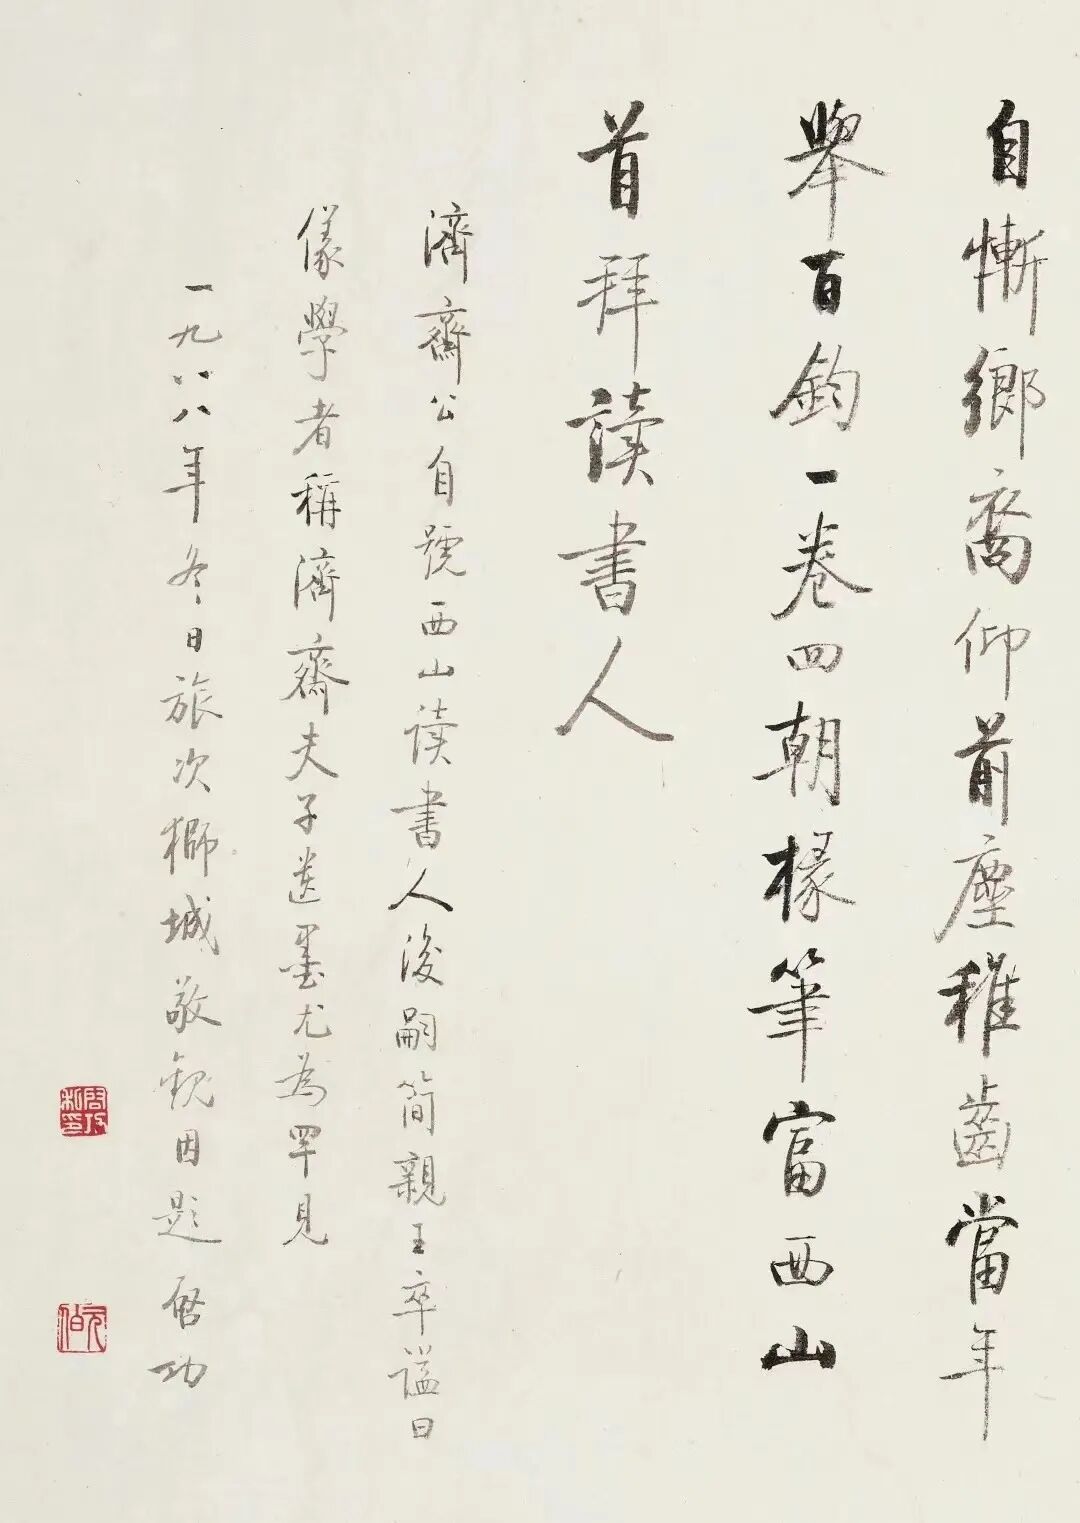 自慚鄉裔仰前塵稚齒當年
舉百鈞一卷四朝椽筆富西山
首拜读書人
濟齋公自號西山读書人後嗣簡親王卒謚曰
儀學者稱濟齋夫子遺墨尤為罕見
一九八八年冬日旅次獅城敬觀因題 启功
元伯